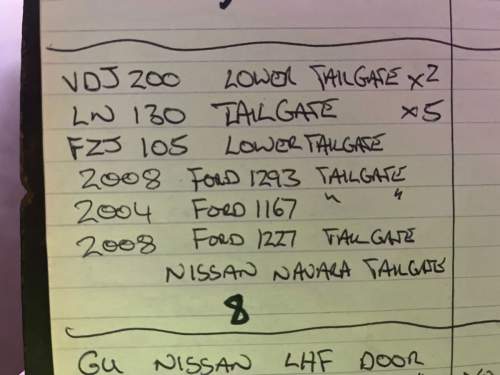 VDJ 200 LOWER TAILGATE x2
LN 130 TAILGATE x5
FZJ 105 LOWER TAILGATE
2008 FORD 1293 TAILGATE
2004 FORD 1167 " "
2008 FORD 1227 TAILGATE
NISSAN NAVARA TAILGATE
8
GU NISSAN LHF DOOR